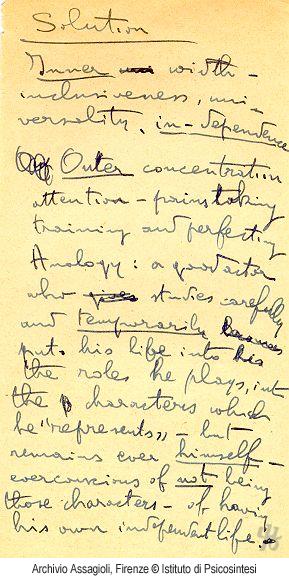 Solution
Inner width –
inclusiveness, uni-
versality, in-dependence
Outer concentration
attention – painstaking
training and perfecting
Analogy: a good actor
who gives studies carefully
and temporarily becomes
puts his life into his
the roles he plays, int
the characters which
he "represents" – but
remains ever himself –
everconscious of not being
those characters – of having
his own independent life!
Archivio Assagioli, Firenze © Istituto di Psicosintesi